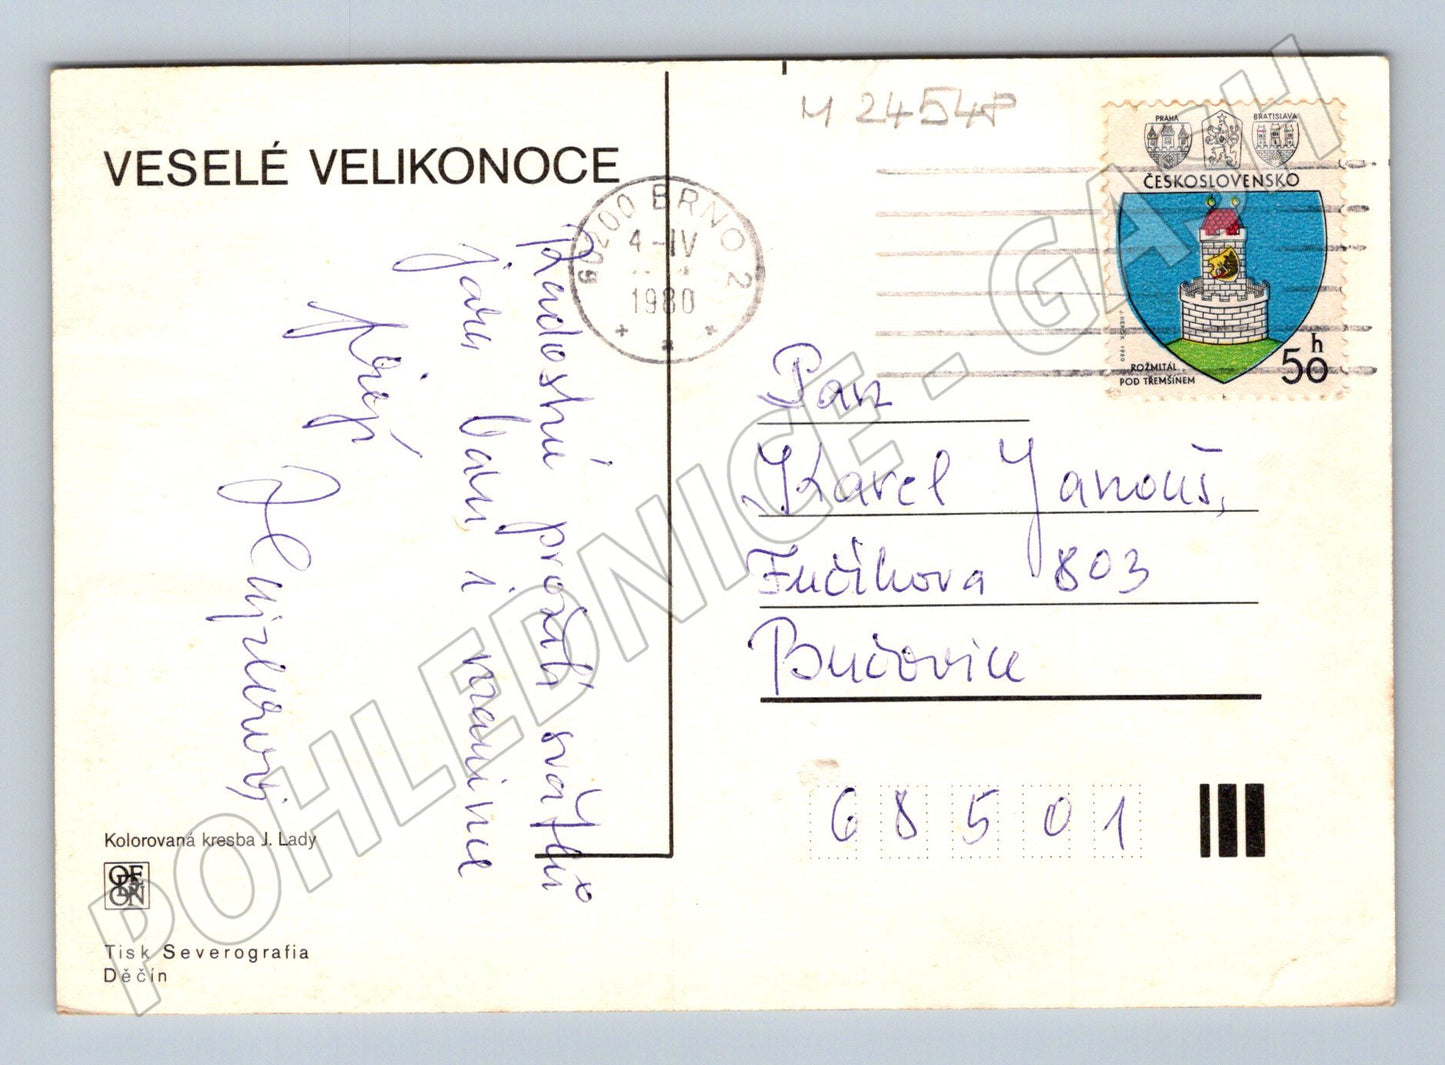 VESELÉ VELIKONOCE
60200 BRNO 2
4-IV
1980
M 2454P
PRAHA
BRATISLAVA
ČESKOSLOVENSKO
ROZMITÁL
POD TŘEMŠÍNEM
50 h
Radostné prožití svátků
jara Vám i mamince
přejí
Pan
Karel Janouš,
Fučíkova 803
Bučovice
68501
Kolorovaná kresba J. Lady
ODEON
Tisk Severografia
Děčín
POHLEDNICE - GASH